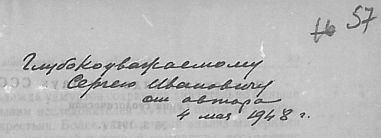 57
Глубокоуважаемому
Сергею Ивановичу
от автора
4 мая 1948 г.